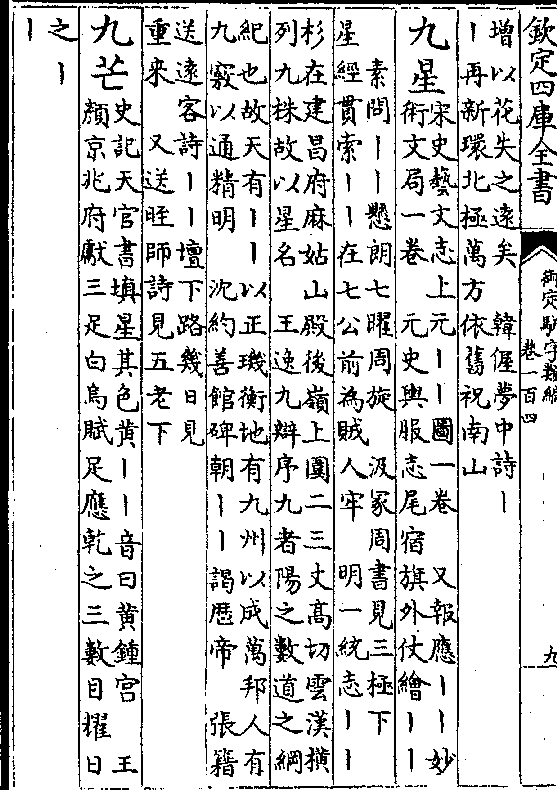 欽定四庫全書
御定駢字類編
卷一百四
九
增以花失之遠矣　韓偓夢中詩｜
｜再新環北極萬方依舊祝南山
九星
宋史藝文志上元｜｜圖一卷　又報應｜｜妙
術文局一卷　元史輿服志尾宿旗外仗繪｜｜
素問｜｜懸朗七曜周旋　汲冢周書見三極下
星經貫索｜｜在七公前為賊人牢　明一統志｜｜
杉在建昌府麻姑山殿後嶺上圍二三丈高切雲漢橫
列九株故以星名　王逸九辯序九者陽之數道之綱
紀也故天有｜｜以正璣衡地有九州以成萬邦人有
九竅以通精明　沈約善館碑朝｜｜謁歴帝　張籍
送遠客詩｜｜壇下路幾日見
重來　又送晊師詩見五老下
九芒
史記天官書填星其色黄｜｜音曰黄鍾宮　王
顏京兆府獻三足白烏賦足應乾之三數目耀日
之｜
｜